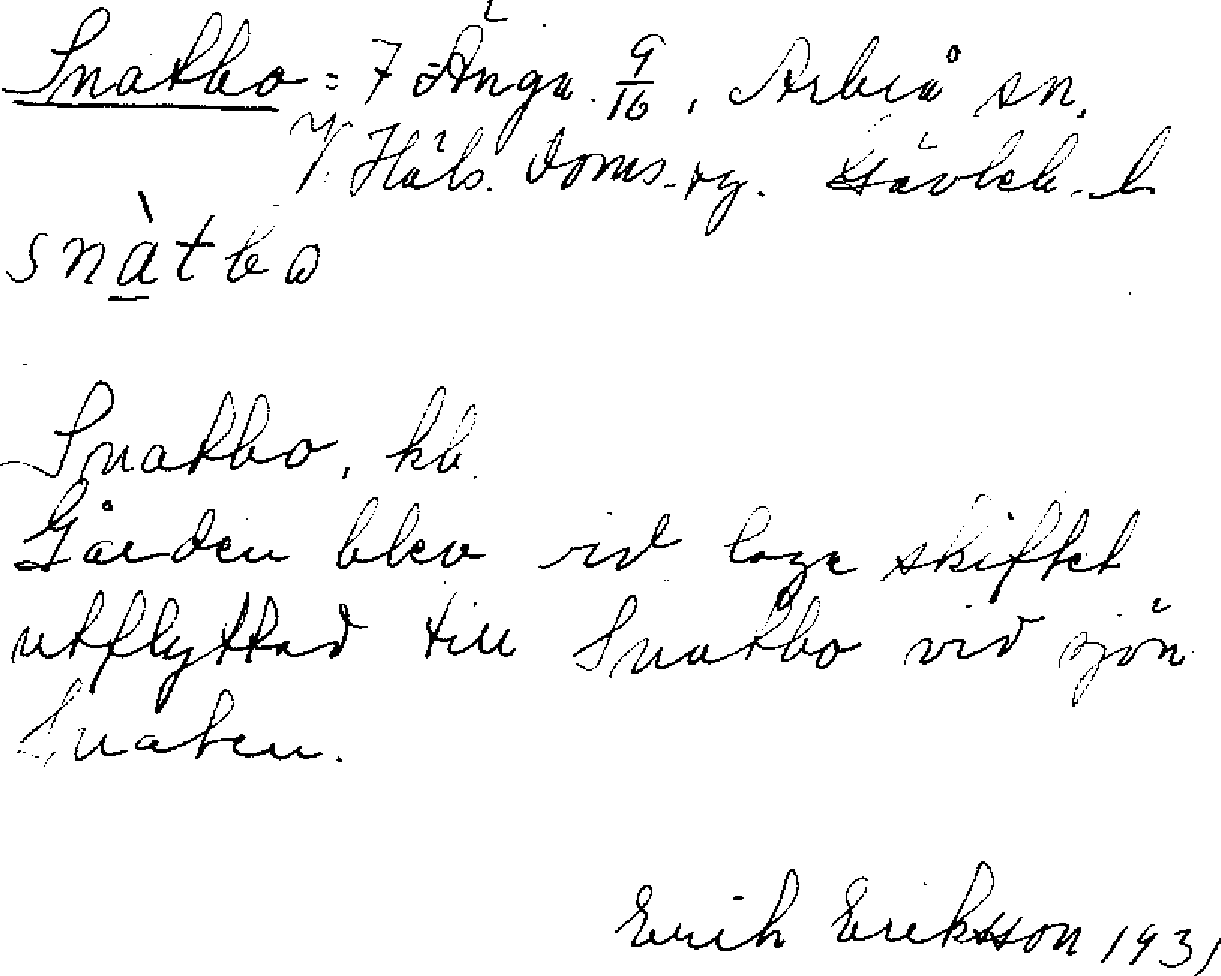 Snatbo = 7 Änga 9/16, Arbrå sn.
V. Häls. doms.-rg. Gävleb. l
snàtbo
Snatbo, kb.
Gården blev vid laga skiftet
utflyttad till Snatbo vid sjön
Snaten.
Erik Eriksson 1931